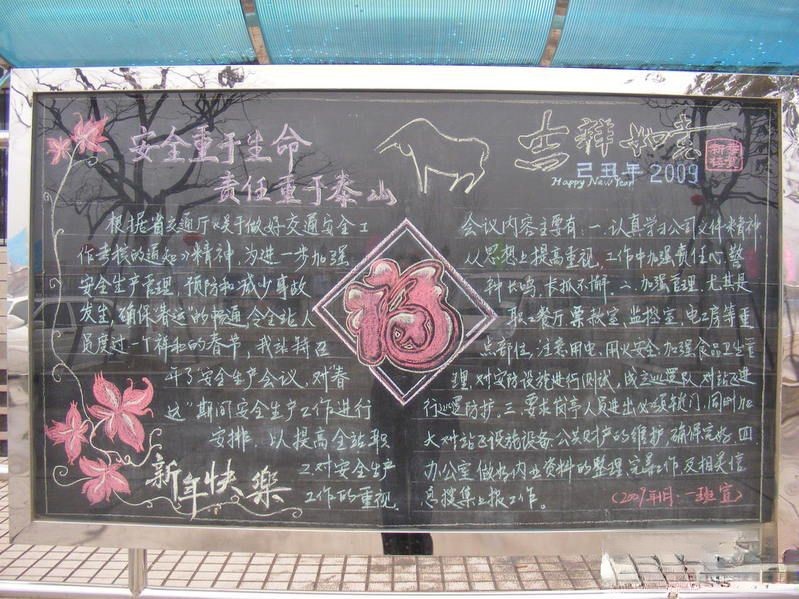 安全重于生命
责任重于泰山
吉祥如意
己丑年
Happy New Year 2009
根据省交通厅《关于做好交通安全工
作考核的通知》精神,为进一步加强
安全生产管理,预防和减少事故
发生,确保春运的畅通,令全站人
员度过一个祥和的春节,我站特召
开了安全生产会议,对“春
运”期间安全生产工作进行
安排,以提高全站职
工对安全生产
工作的重视.
福
会议内容主要有:一.认真学习公司文件精神
从思想上提高重视,工作中加强责任心,警
钟长鸣,长抓不懈.二.加强管理,尤其是
职工餐厅,票款室,监控室,电工房等重
点部位,注意用电,用火安全,加强食品卫生管
理,对安防设施进行测试,成立巡逻队,对站区进
行巡逻防护.三.要求岗亭人员进出必须锁门,同时加
大对站区设施设备,公共财产的维护,确保完好.四.
办公室做好内业资料的整理完善工作及相关信
息搜集上报工作。
(2009年1月·一班宣)
新年快樂